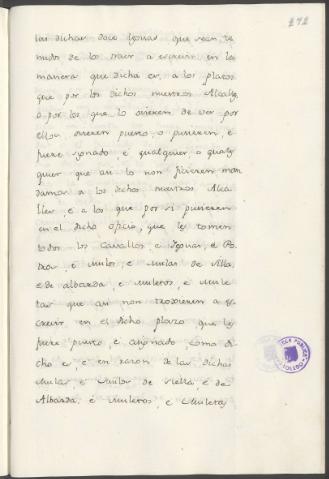 272
las dichas doce Yeguas que sean te
nudo de los traer a escreuir en la
manera que dicha es, a los plazos
que por los dichos nuestros Alcalls,
o por los que lo ovieren de ver por
ellos ovieren puesto, o pusieren, e
fuere yonado, e qualquier o qualq
quier que asi lo non ficieren man
damos a los dichos nuestros Alca
lles, e a los que por si pusieren
en el dicho oficio, que les tomen
todos los Cavallos, e Yeguas, e Po
tros, e Mulos, e Mulas de silla,
e de albarda, e Muletos, e Mule
tas que asi non troxieren a es
creuir en el dicho plazo que les
fuere puesto, e asignado como di
cho es, e en razon de las dichas
Mulas, e Mulos de siella, e de
Albarda, e Muletos, e Muletas
TOLEDO